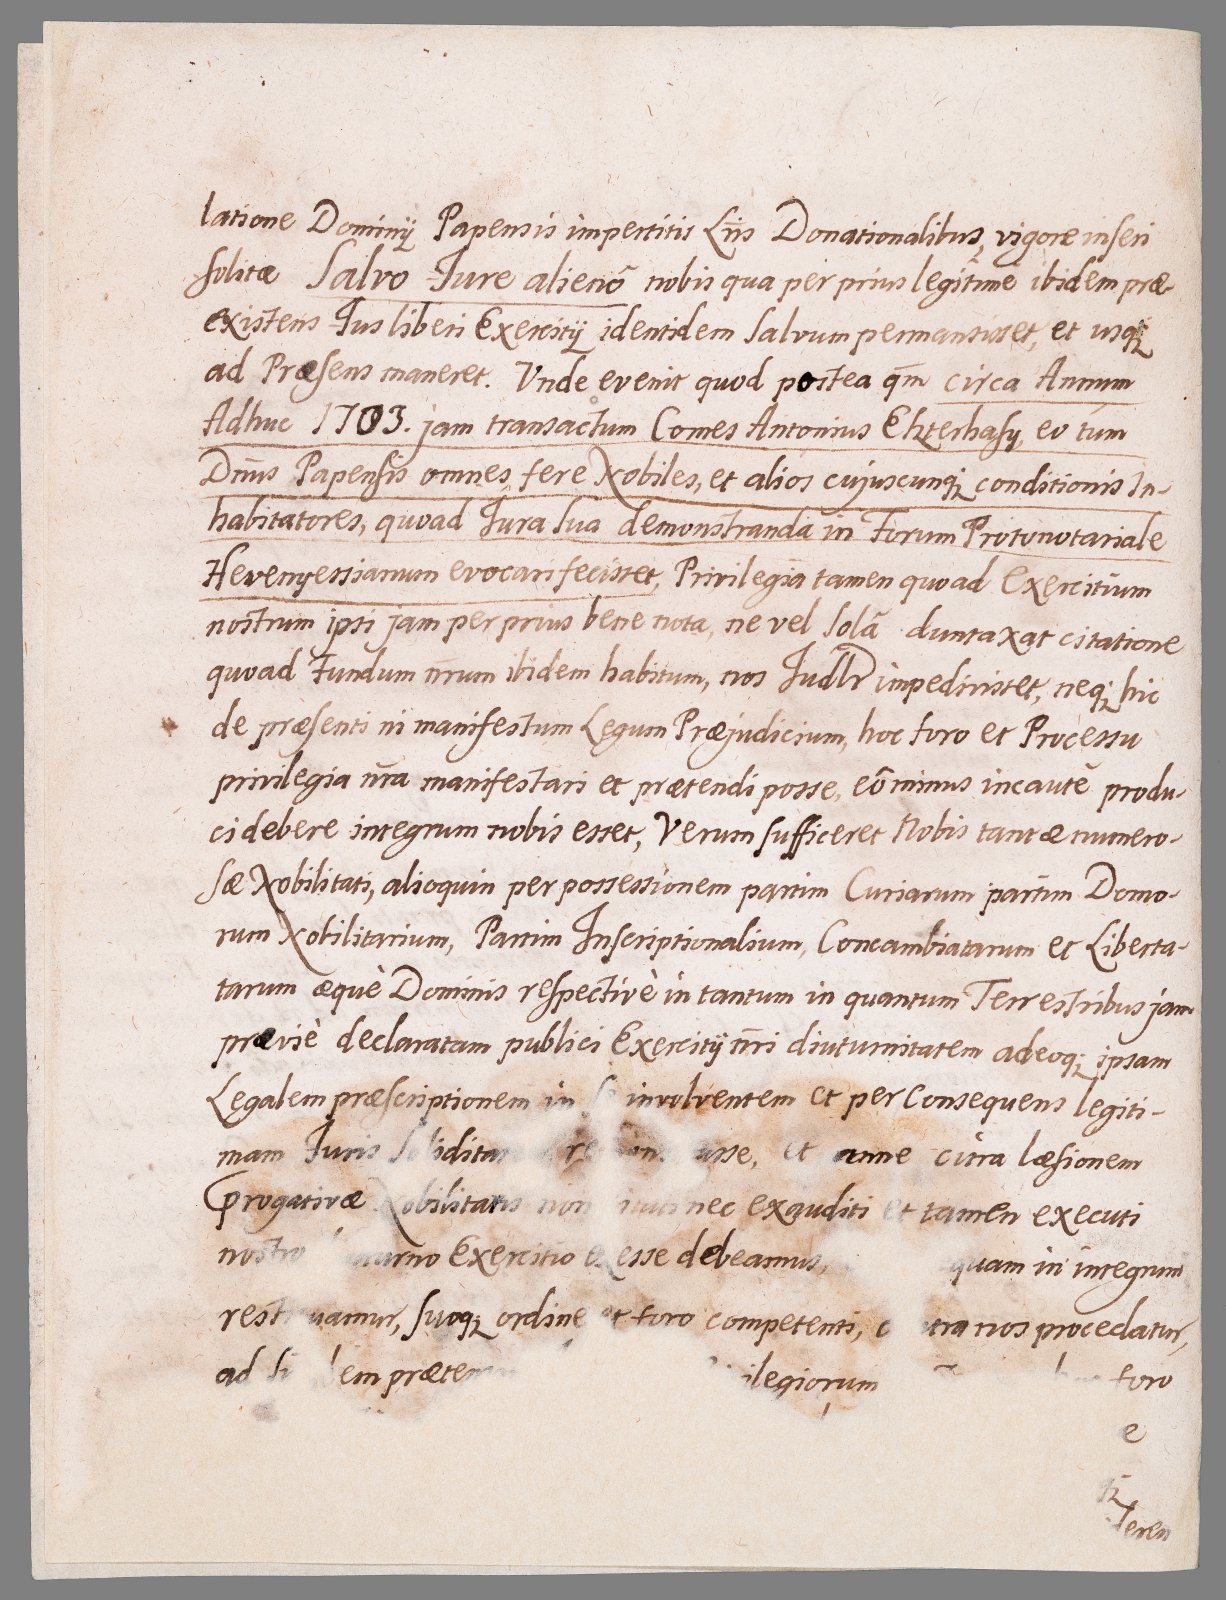 latione Dominÿ Papensis impertitis Lr̃is Donationalibus, vigore inseri
solitæ Salvo Jure alienō nobis qua per prius legitime ibidem præ-
existens Jus liberi Exercitÿ identidem Salvum permansisset, et usq;
ad Præsens maneret. Unde evenit quod postea qm̃ circa Annum
Adhuc 1703. jam transactum Comes Antonius Eszterhasy, eo tum
Dnũs Papensis omnes fere Nobiles, et alios cujuscunq; conditionis In-
habitatores, quoad Jura sua demonstranda in Forum Protonotariale
Hevenyessianum evocari fecisset, Privilegia tamen quoad Exercitium
nostrum ipsi jam per prius bene nota, ne vel solã duntaxat citatione
quoad Fundum nr̃um ibidem habitum, nos impedivisset, neq; hic
de præsenti ni manifestum Legum Præjudicium, hoc foro et Processu
privilegia nr̃a manifestari et prætendi posse, eõminus incautè produ-
ci debere integrum nobis esset, Verum sufficeret Nobis tantæ numero-
sæ Nobilitati, alioquin per possessionem partim Curiarum partim Domo-
rum Nobilitarium, Partim Inscriptionalium, Concambiatarum et Liberta-
tarum æquè Dominis respectivè in tantum in quantum Terrestribus jam
præviè declaratam publici Exercitÿ nr̃i diuturnitatem adeoq; ipsam
Legalem præscriptionem in se involventem et per Consequens legiti-
mam Juris et anne citra læsionem
progativæ Nobilitatis non nec exauditi et tamen executi
nostro Exercitio exesse debeamus, quam in integrum
restituamur, suoq; ordine et foro competenti, contra nos procedatur,
ad foro
e